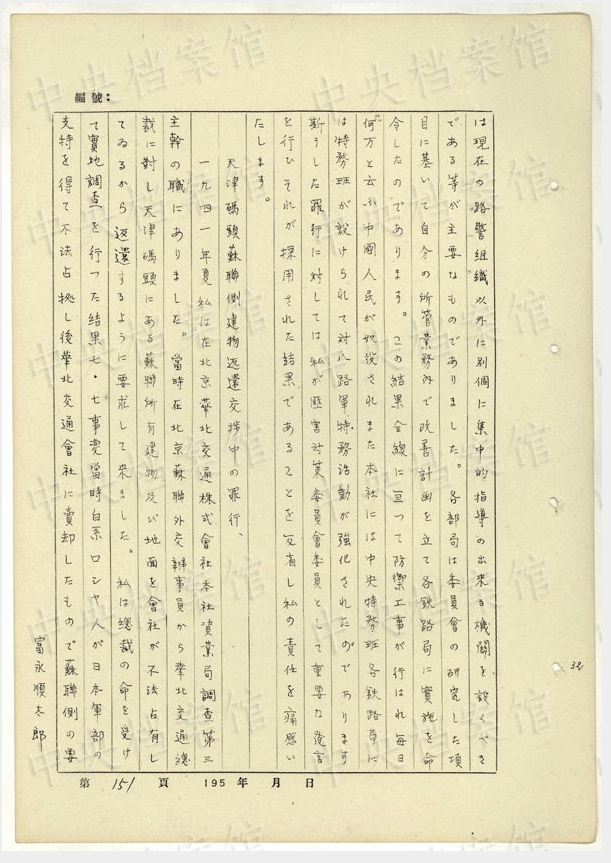 編號：
は現在の路警組織以外に別個に集中的指導の出来る機関を設くべき
である等が主要なものでありました。各部局は委員会の研究した項
目に基いて自分の所管業務内で改善計画を立て各鉄路局に実施を命
令したのであります。この結果全線に亘つて防禦工事が行はれ毎日
何万と云ふ中國人民が奴役されまた本社には中央特務班各鉄路局に
は特務班が設けられて対八路軍特務活動が強化されたのであります
斯うした罪行に対しては私が匪害対策委員會委員として重要な発言
を行ひそれが採用された結果であることを反省し私の責任を痛感い
たします。
天津碼頭蘇聯側建物返還交捗中の罪行、
一九四一年夏私は在北京華北交通株式會社本社資業局調査第三
主幹の職にありました。當時在北京蘇聯外交辦事員から華北交通總
裁に対し天津碼頭にある蘇聯所有建物及び地面を會社が不法占有し
てゐるから返還するように要求して来ました。私は總裁の命を受け
て實地調査を行つた結果七・七事変當時白系ロシヤ人が日本軍部の
支持を得て不法占拠し後華北交通會社に賣却したもので蘇聯側の要
富永順太郎
第 151 頁 195 年 月 日
32
中央档案馆